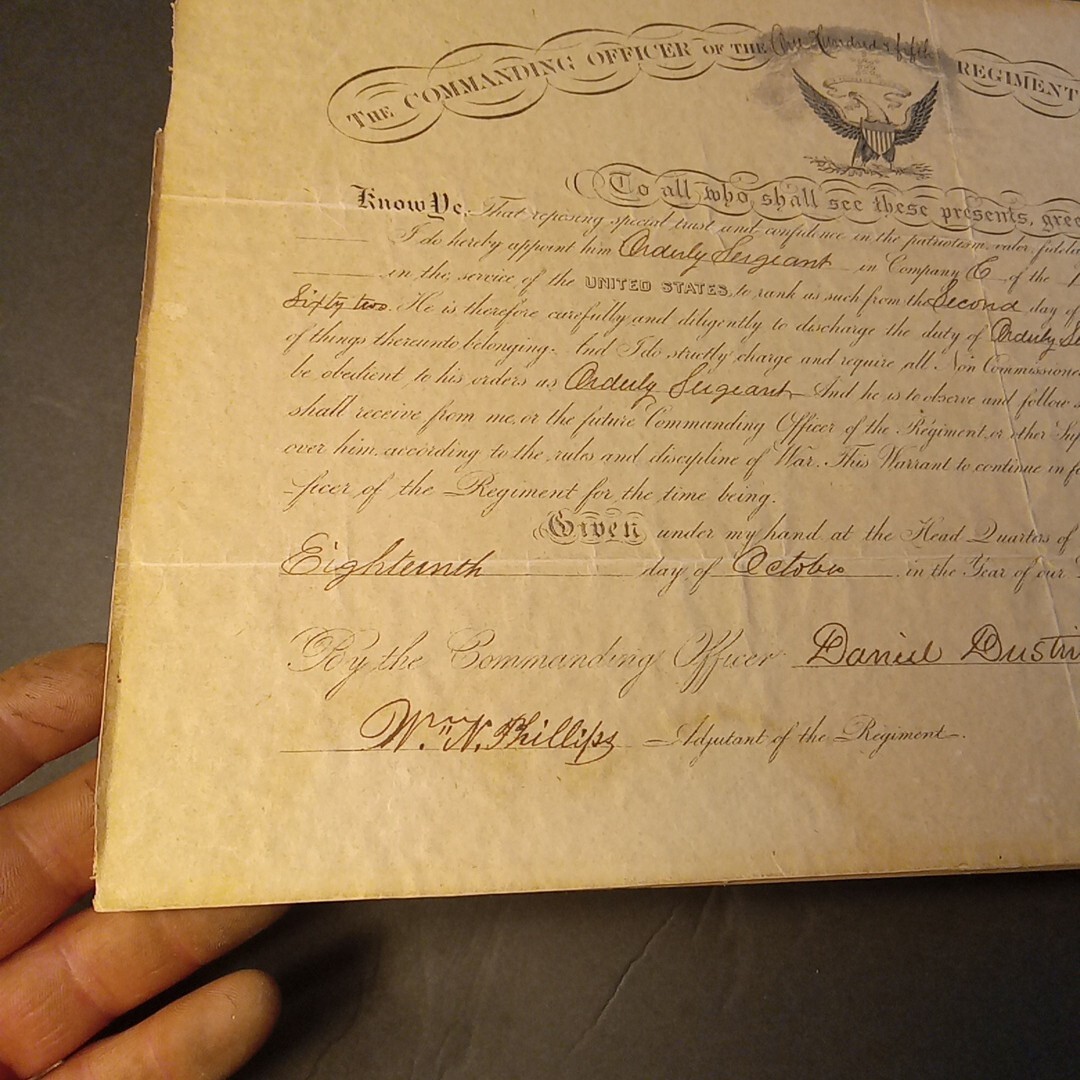 THE COMMANDING OFFICER OF THE One Hundred & fifth REGIMENT
To all who shall see these presents, gree
Know Ye, That reposing special trust and confidence in the patriotism, valor, fideli
I do hereby appoint him Orderly Sergeant in Company C of the
in the service of the UNITED STATES, to rank as such from the Second day of
Sixty two. He is therefore carefully and diligently to discharge the duty of Orderly Se
of things thereunto belonging. And I do strictly charge and require all Non Commissione
be obedient to his orders as Orderly Sergeant And he is to observe and follow s
shall receive from me, or the future Commanding Officer of the Regiment, or other Sup
over him, according to the rules and discipline of War. This Warrant to continue in fo
ficer of the Regiment for the time being.
Given under my hand at the Head Quarters of
Eighteenth day of October in the Year of our
By the Commanding Officer Daniel Dustin
Wm. N. Phillips Adjutant of the Regiment.